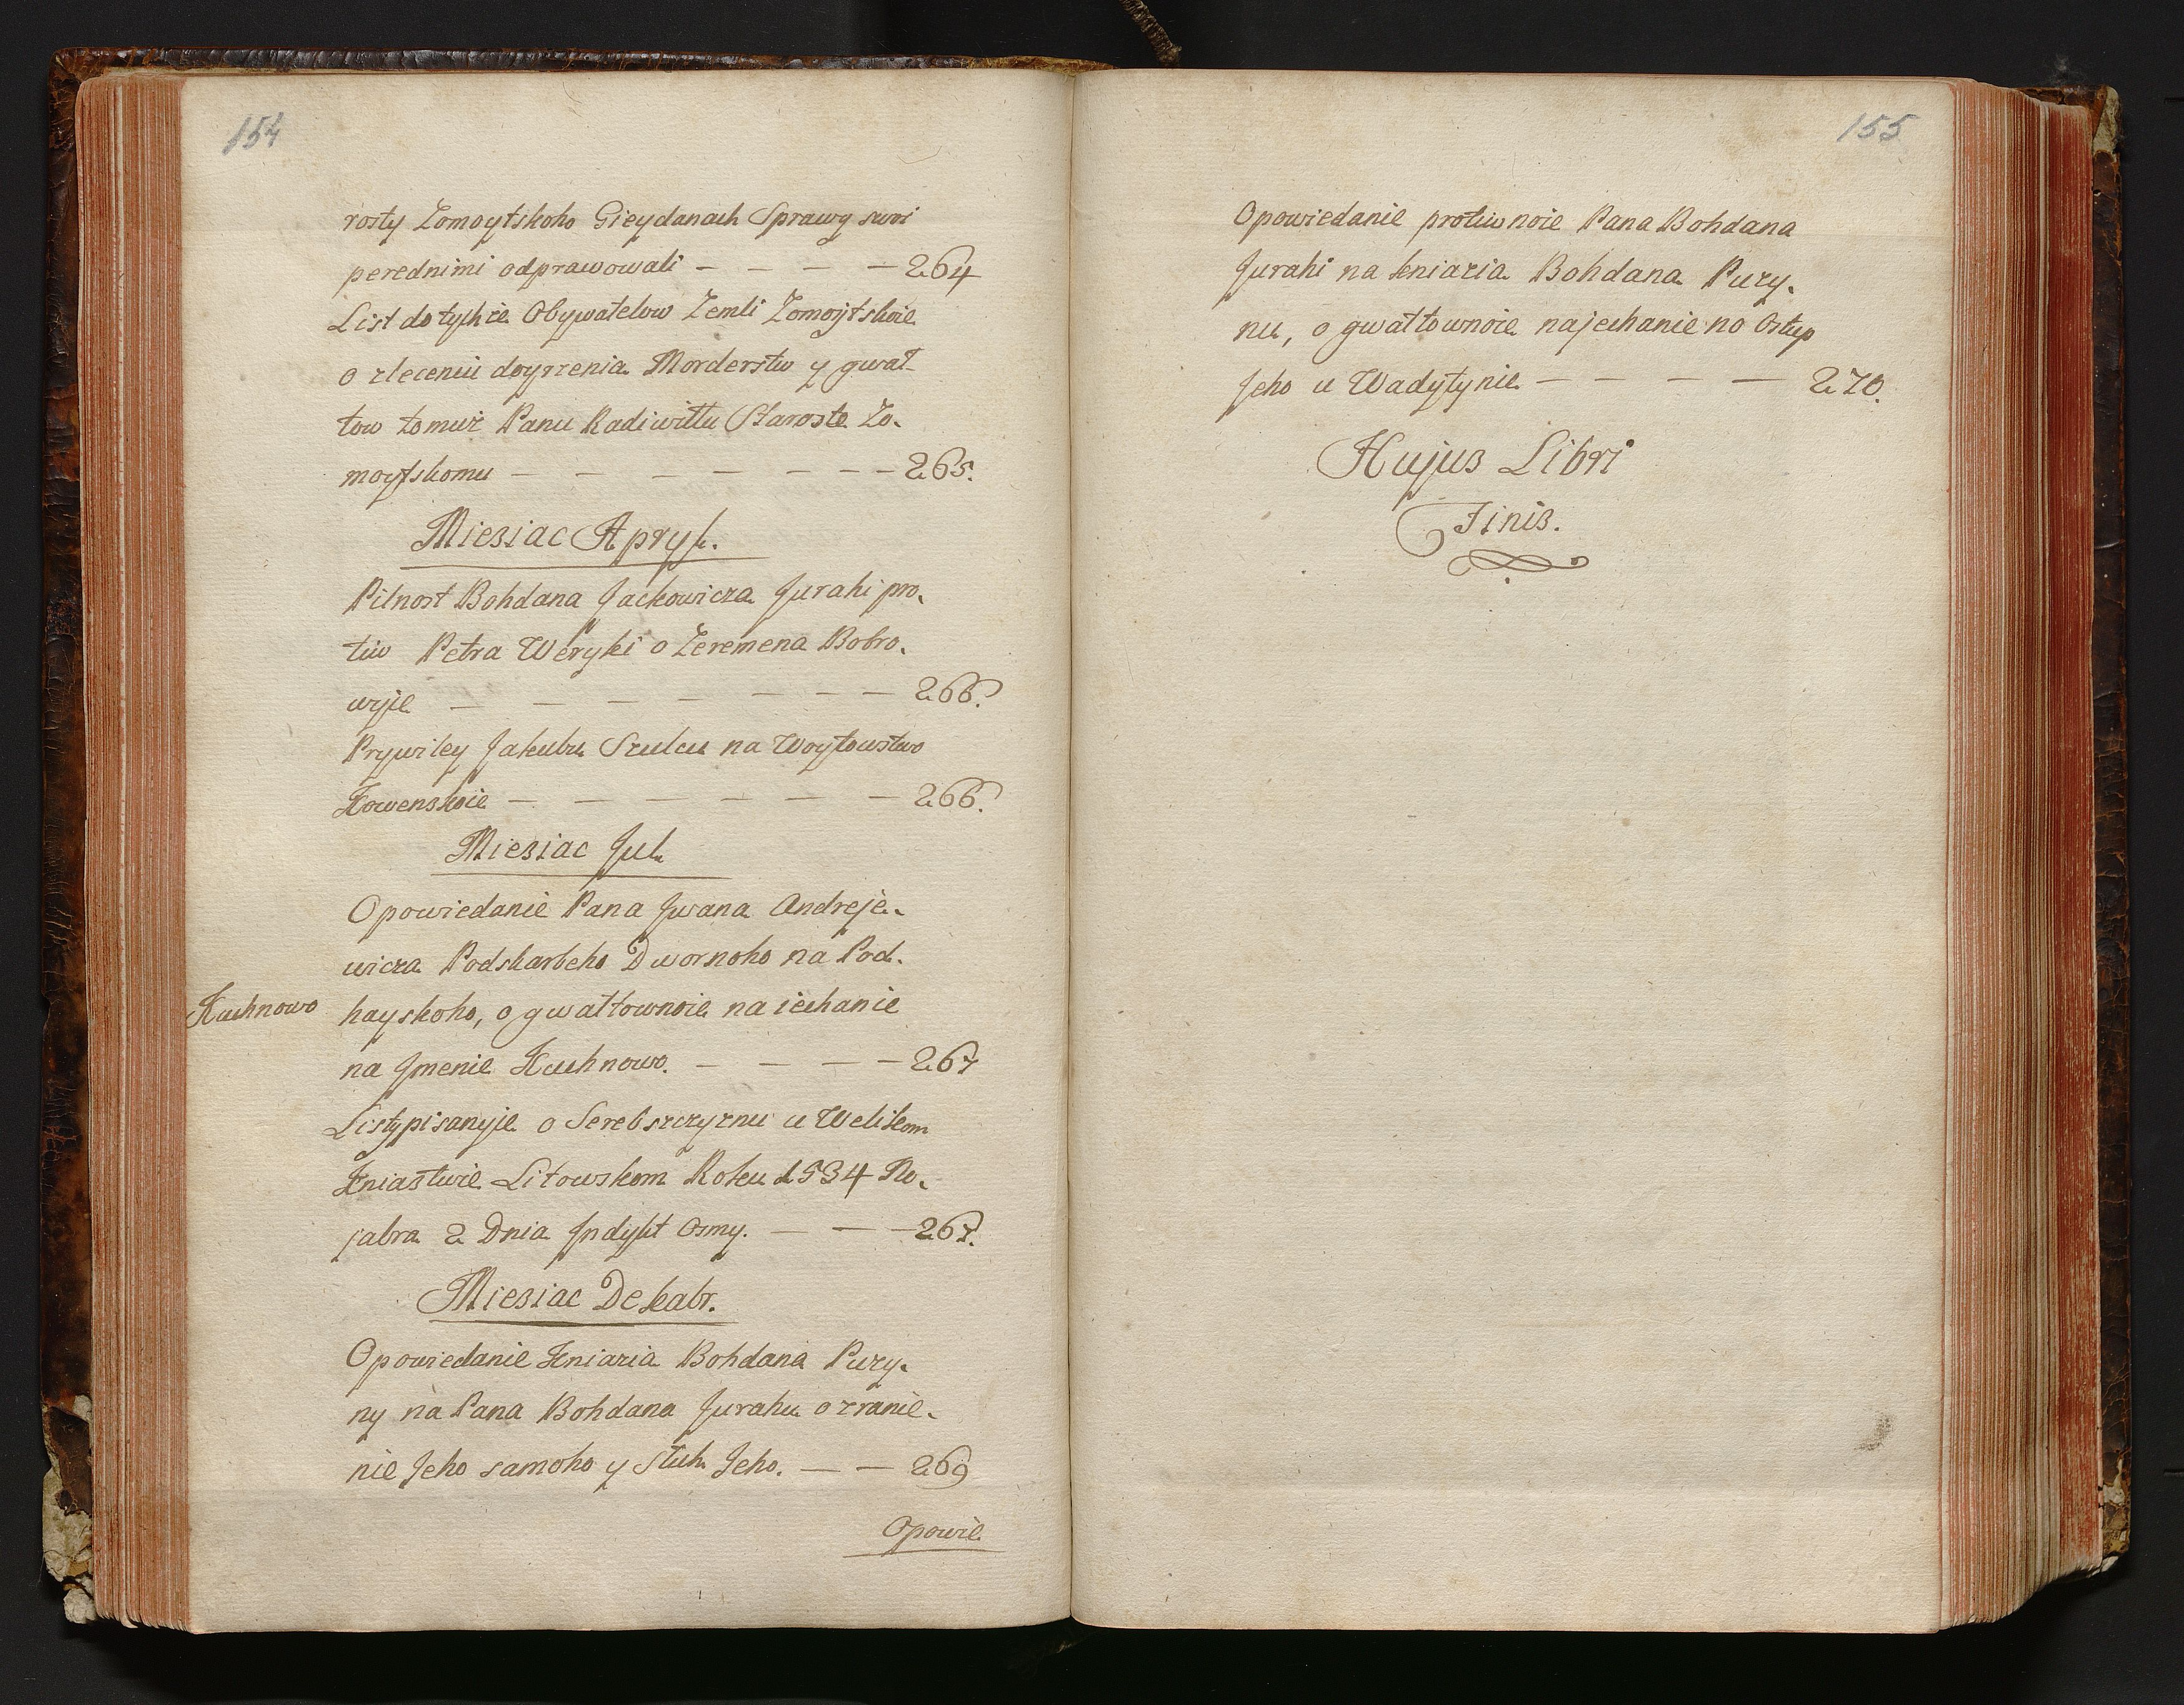 154
rosty Zomoytskoho Gieydanach Sprawy swoi
perednimi odprawowali — — — — 264
List do tychże Obywatelow Zemli Zomoytskoie
o zleceniu doyrzenia Morderstw y gwał-
tow tomuż Panu Radiwiłłu Staroste Zo-
moytskomu — — — — — — — 265.
Miesiac Apryl.
Pilnost Bohdana Jackowicza Jurahi pro-
tiw Petra Weryki o Zeremena Bobro-
wyje — — — — — — — 266.
Prywiley Jakubu Szulcu na Woytowstwo
Kowenskoie — — — — — — 266.
Miesiac Jul.
Opowiedanie Pana Jwana Andreje-
wicza Podskarbeho Dwornoho na Pod-
Kuchnowo
hayskoho, o gwałtownoie na iechanie
na Jmenie Kuchnowo. — — — — 267
Listy pisanyje o Serebszczyznu u Welikom
Kniastwie Litowskom Roku 1534 No-
jabra 2 Dnia Jndykt Osmy. — — — 267.
Miesiac Dekabr.
Opowiedanie Kniazia Bohdana Puzy-
ny na Pana Bohdana Jurahu o zranie-
nie Jeho samoho y Słuh Jeho. — — 269
Opowie
155
Opowiedanie protiwnoie Pana Bohdana
Jurahi na kniazia Bohdana Puzy-
nu, o gwałtownoie najechanie no Ostup
Jeho u Wadytynie — — — — 270.
Hujus Libri
Finis.